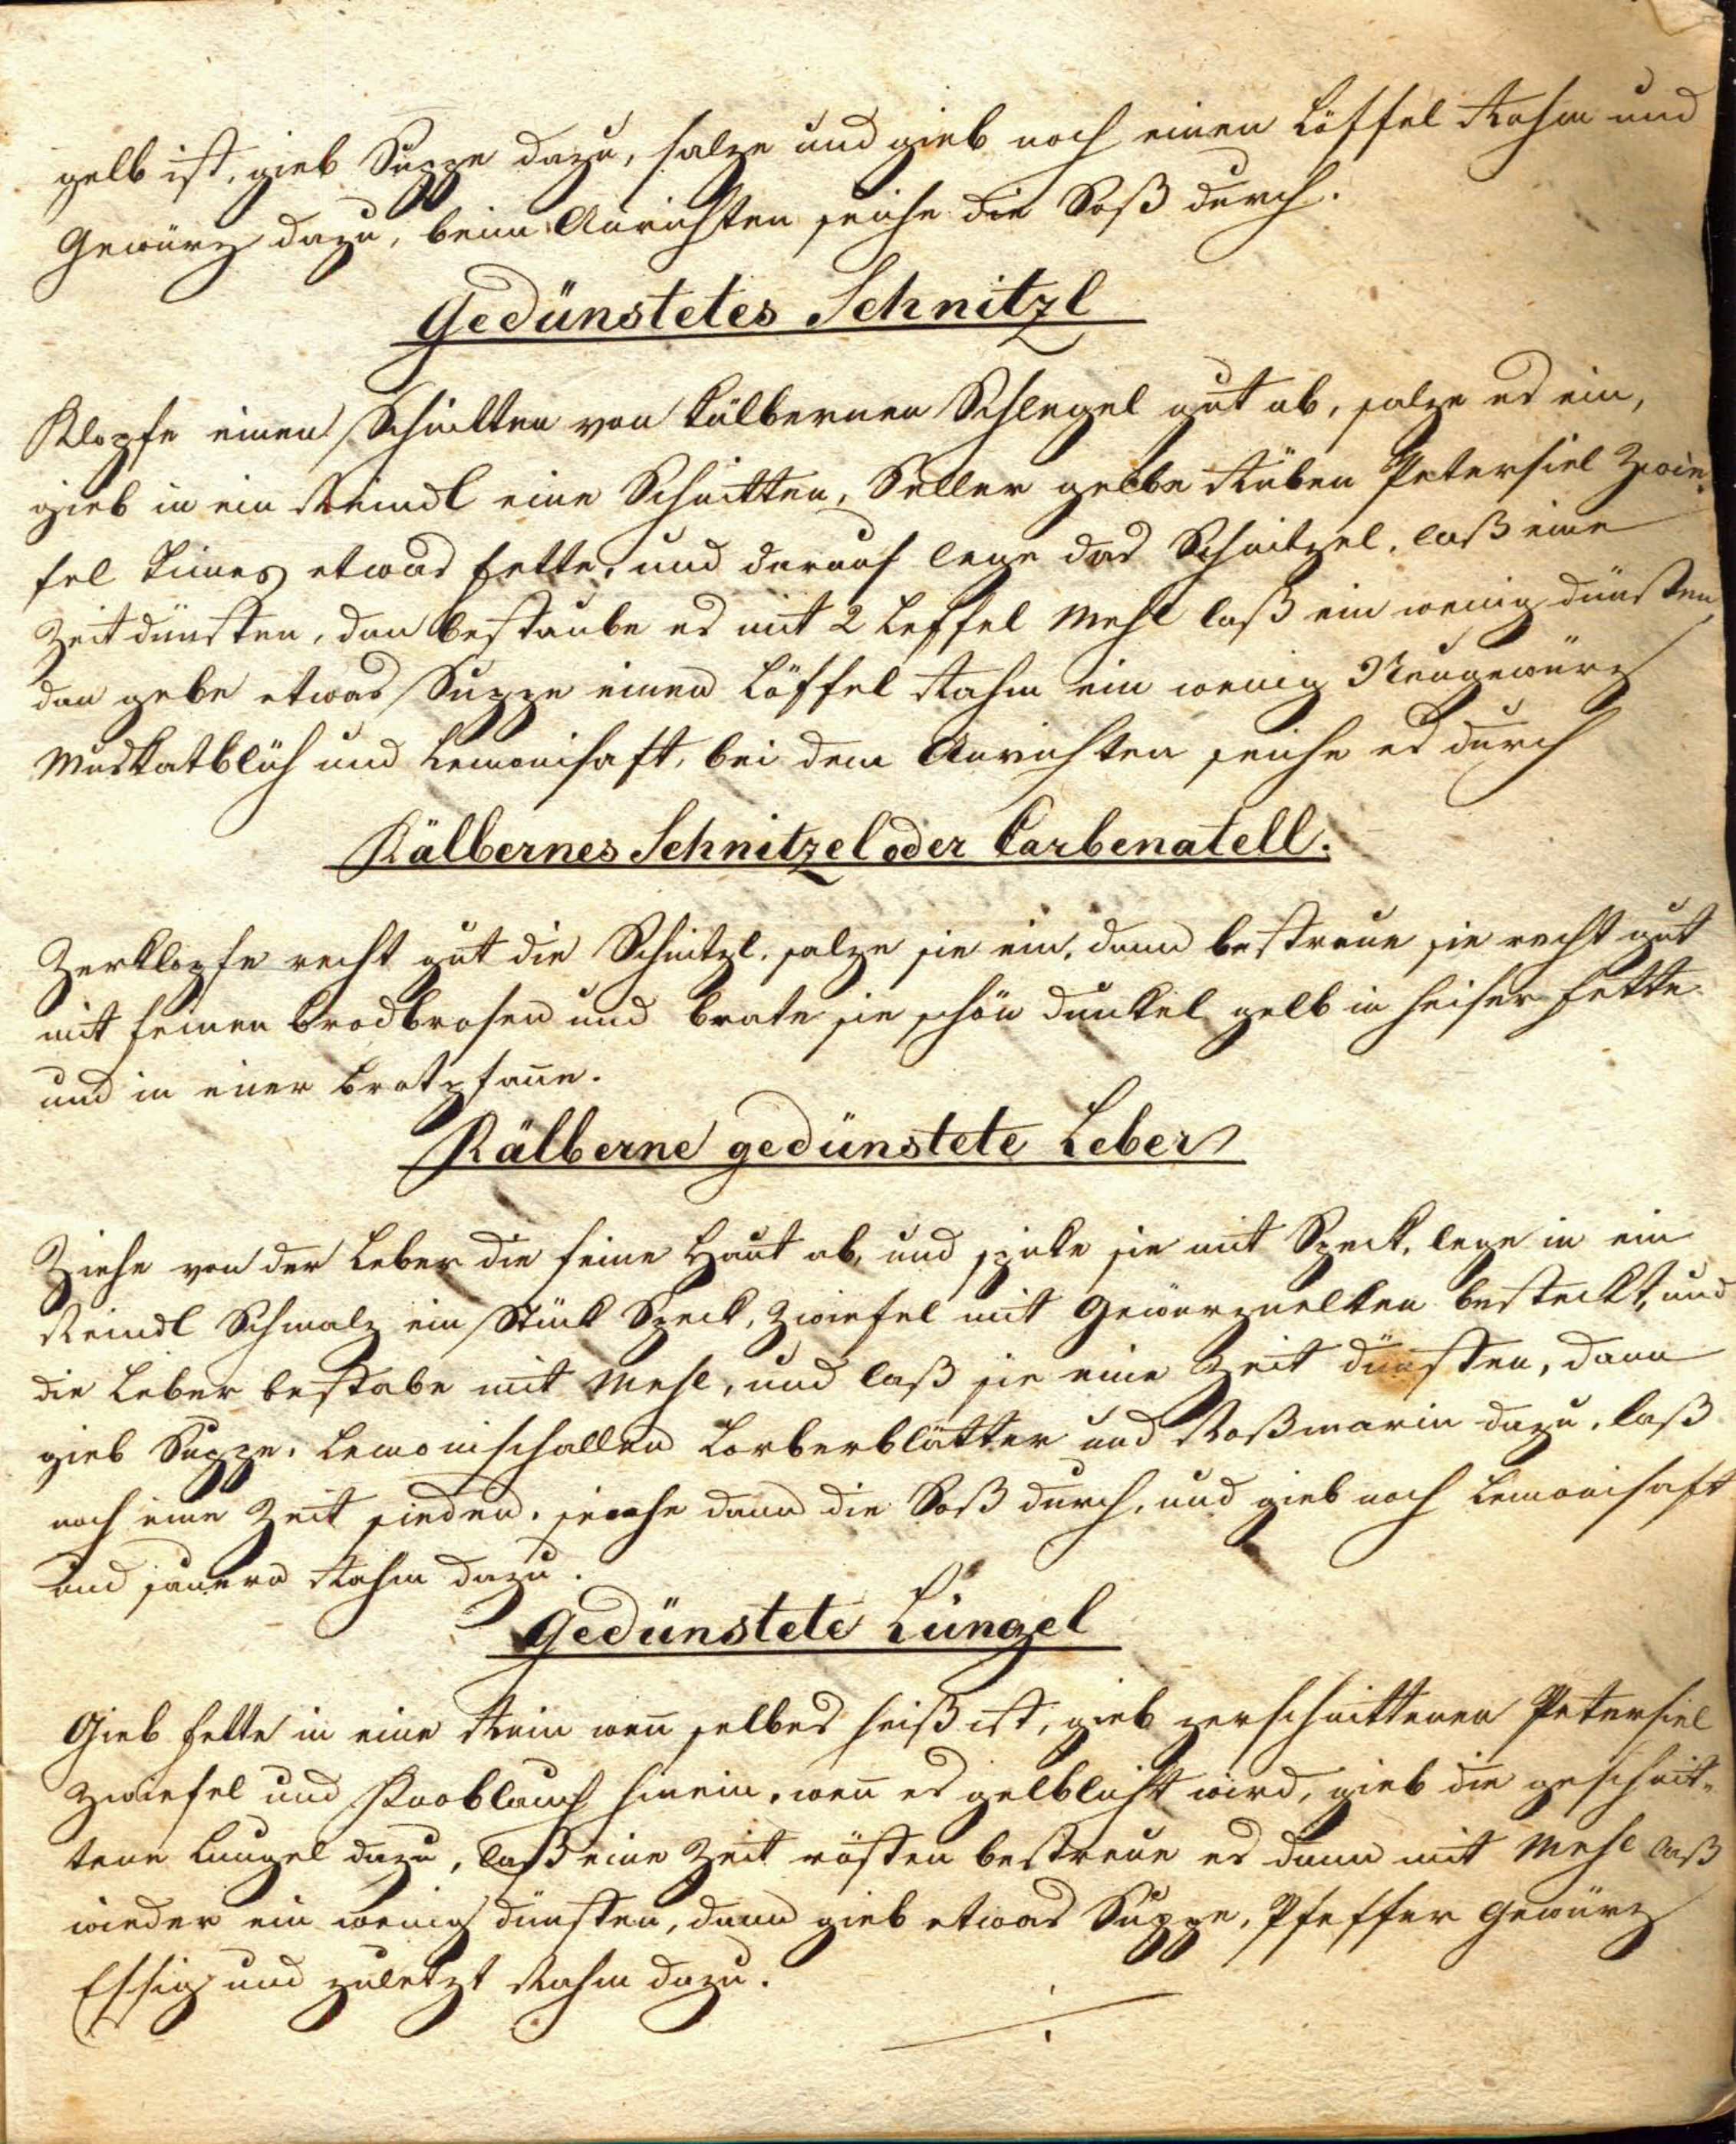 gelb ist, gieb Suppe dazu, salze und gieb noch einen Löffel Rahm und
Gewürz dazu, beim Anrichten seihe die Soß durch.
Gedünstetes Schnitzl
Klopfe einen Schnitten von kälbernen Schlegel gut ab, salze es ein,
gieb in ein Reindl eine Schnitten, Seller gelbe Rüben Petersiel Zwie-
fel Timas etwas Fette, und darauf lege das Schnitzel, laß eine
Zeit dünsten, dan bestaube es mit 2 Leffel Mehl laß ein wenig dünsten,
dan gebe etwas Suppe einen Löffel Rahm ein wenig Neugewürz
Muskatblüh und Lemonisaft, bei dem Anrichten seihe es durch
Kälbernes Schnitzel oder Carbenatell.
Zerklopfe recht gut die Schnitzl, salze sie ein, dann bestreue sie recht gut
mit feinen Brodbrosen und brate sie schön dunkel gelb in heiser Fette
und in einer Bratpfan̄e.
Kälberne gedünstete Leber
Ziehe von der Leber die feine Haut ab, und spike sie mit Speck, lege in ein
Reindl Schmalz ein Stück Speck, Zwiefel mit Gewürznelken besteckt, und
die Leber bestabe mit Mehl, und laß sie eine Zeit dünsten, dann
gieb Suppe, Lemonischallen Lorberblätter und Roßmarin dazu, laß
noch eine Zeit sieden, seihe dann die Soß durch, und gieb noch Lemonisaft
und sauern Rahm dazu.
Gedünstete Lüngel
Gieb Fette in eine Rein wen̄ selbes heiß ist, gieb zerschnittenen Petersiel
Zwiefel und Knoblauch hinein, wen̄ es gelblicht wird, gieb die geschnit-
tene Lungel dazu, laß eine Zeit rösten bestreue es dann mit Mehl laß
wieder ein wenig dünsten, dann gieb etwas Suppe, Pfeffer Gewürz
Essig und zuletzt Rahm dazu.